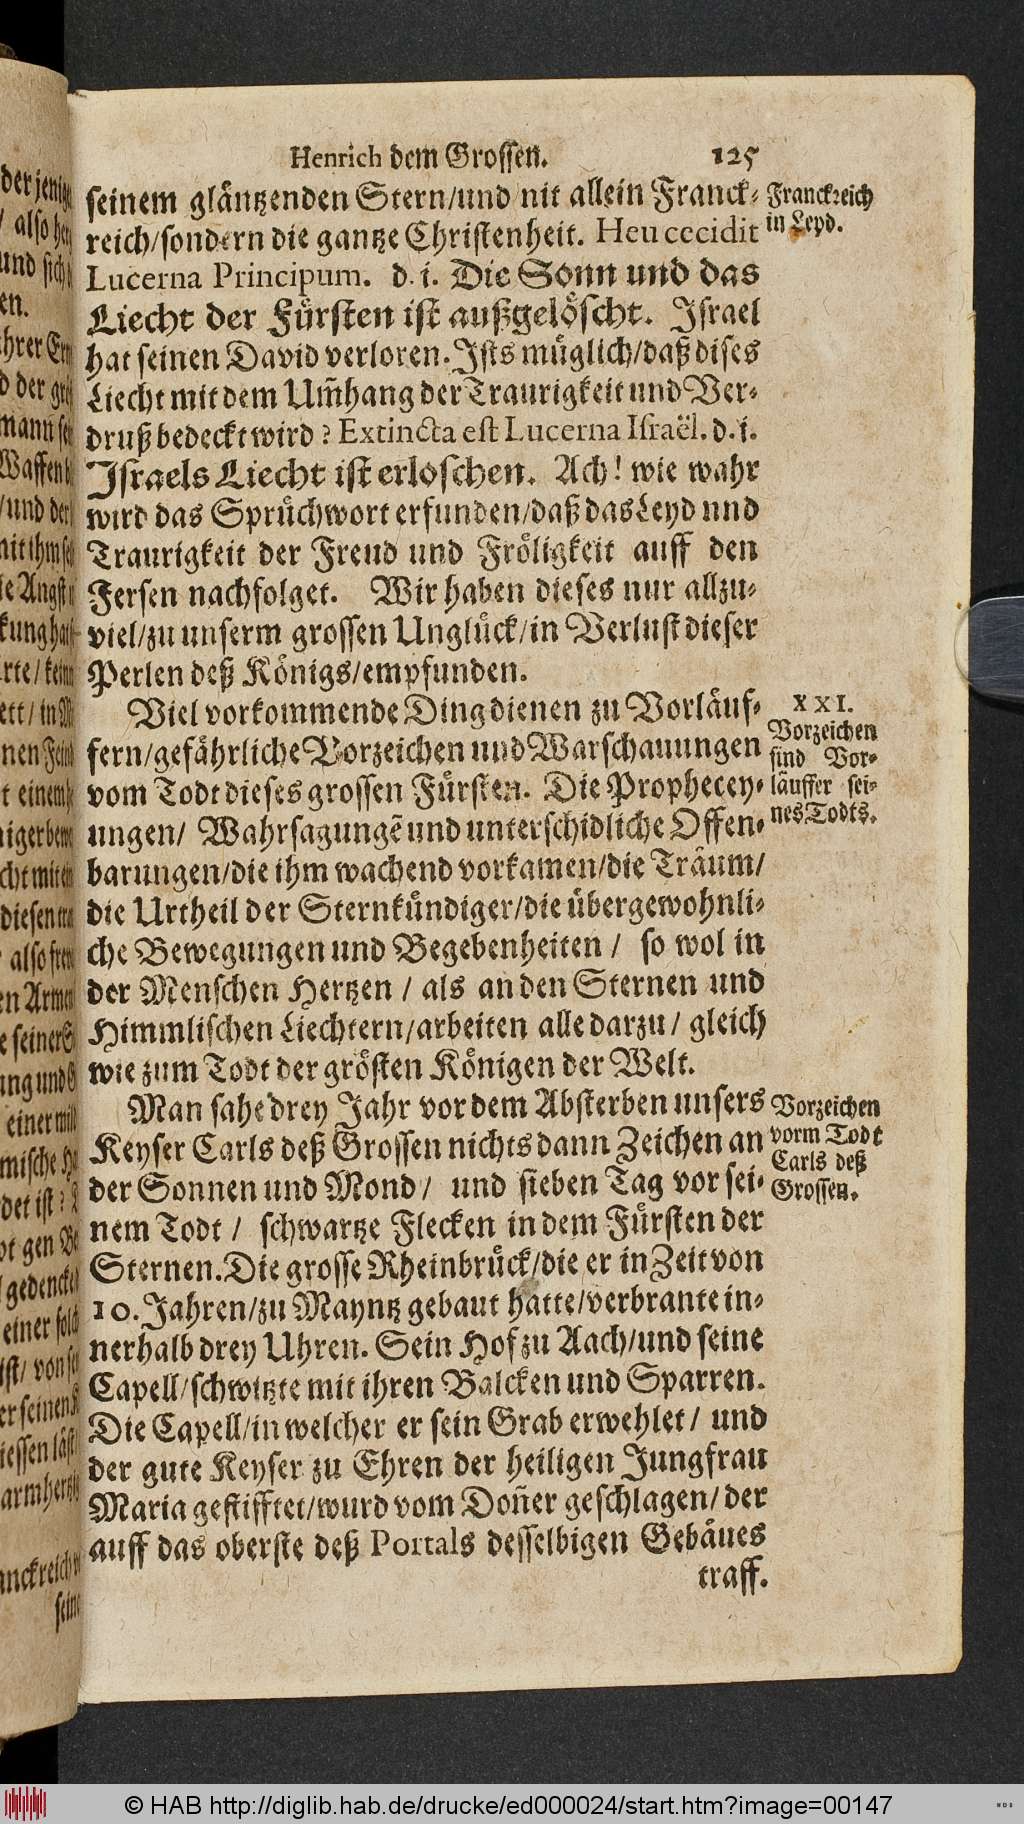 Henrich dem Grossen. 125
seinem gläntzenden Stern/und nit allein Franck-
reich/sondern die gantze Christenheit. Heu cecidit
Lucerna Principum. d. i. Die Sonn und das
Liecht der Fürsten ist außgelöscht. Israel
hat seinen David verloren. Ists müglich/daß dises
Liecht mit dem Um̃hang der Traurigkeit und Ver-
druß bedeckt wird? Extincta est Lucerna Israël. d. i.
Israels Liecht ist erloschen. Ach! wie wahr
wird das Sprüchwort erfunden/daß das Leyd und
Traurigkeit der Freud und Fröligkeit auff den
Fersen nachfolget. Wir haben dieses nur allzu-
viel/zu unserm grossen Unglück/in Verlust dieser
Perlen deß Königs/empfunden.
Franckreich
in Leyd.
Viel vorkommende Ding dienen zu Vorläuf-
fern/gefährliche Vorzeichen und Warschauungen
vom Todt dieses grossen Fürsten. Die Prophecey-
ungen/ Wahrsagungẽ und unterschidliche Offen-
barungen/die ihm wachend vorkamen/die Träum/
die Urtheil der Sternkündiger/die übergewohnli-
che Bewegungen und Begebenheiten / so wol in
der Menschen Hertzen / als an den Sternen und
Himmlischen Liechtern/arbeiten alle darzu / gleich
wie zum Todt der grösten Königen der Welt.
XXI.
Vorzeichen
sind Vor-
läuffer sei-
nes Todts.
Man sahe drey Jahr vor dem Absterben unsers
Keyser Carls deß Grossen nichts dann Zeichen an
der Sonnen und Mond / und sieben Tag vor sei-
nem Todt / schwartze Flecken in dem Fürsten der
Sternen. Die grosse Rheinbrück/die er in Zeit von
10. Jahren/zu Mayntz gebaut hatte/verbrante in-
nerhalb drey Uhren. Sein Hof zu Aach/und seine
Capell/schwitzte mit ihren Balcken und Sparren.
Die Capell/in welcher er sein Grab erwehlet / und
der gute Keyser zu Ehren der heiligen Jungfrau
Maria gestifftet/wurd vom Don̄er geschlagen/ der
auff das oberste deß Portals desselbigen Gebäues
traff.
Vorzeichen
vorm Todt
Carls deß
Grossen.
© HAB http://diglib.hab.de/drucke/ed000024/start.htm?image=00147